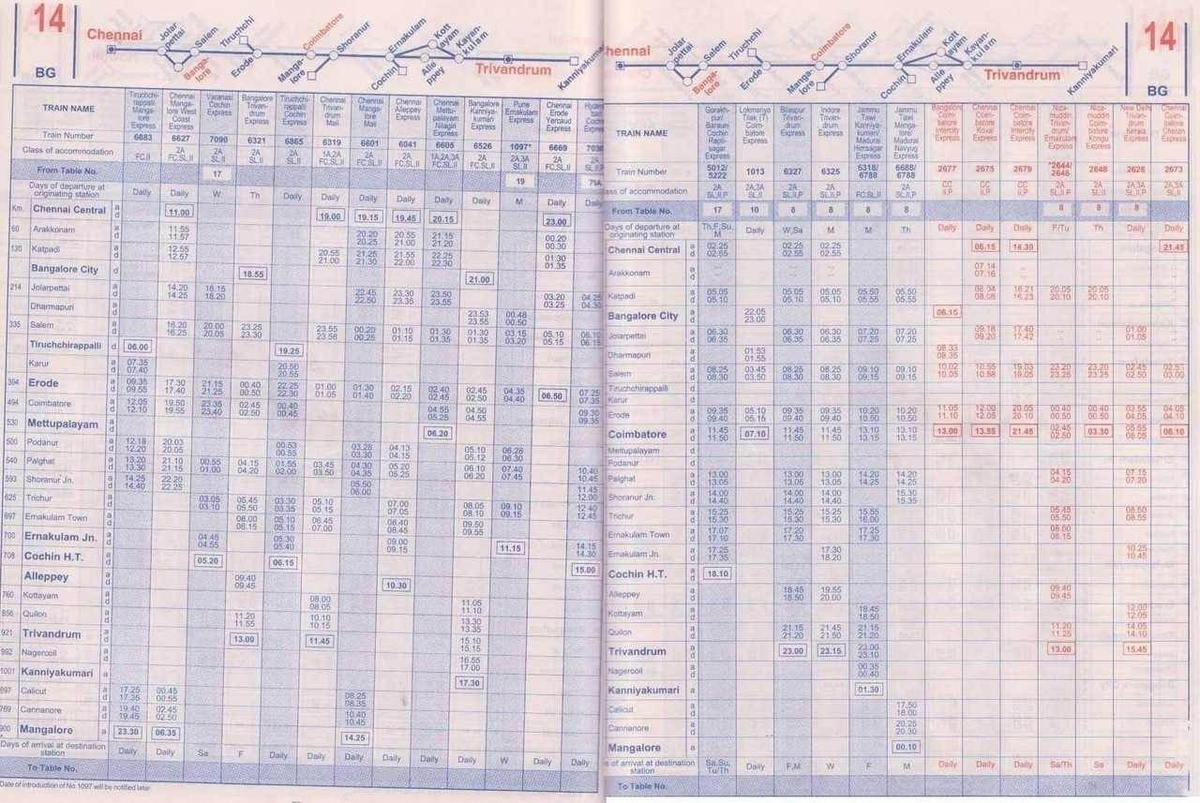 14
BG
Chennai
Jolar pettai
Salem
Banga- lore
Tiruchchi
Erode
Coimbatore
Manga- lore
Shoranur
Ernakulam
Cochin
Kott ayam
Alle ppey
Kayan- kulam
Trivandrum
Kanniyakumari
TRAIN NAME
Tiruchchi- rappalli Manga- lore Express
Chennai Manga- lore West Coast Express
Varanasi Cochin Express
Bangalore Trivan- drum Express
Tiruchchi- rappalli Cochin Express
Chennai Trivan- drum Mail
Chennai Manga- lore Mail
Chennai Alleppey Express
Chennai Mettu- palayam Nilagiri Express
Bangalore Kanniya- kumari Express
Pune Ernakulam Express
Chennai Erode Yercaud Express
Train Number 6683 6627 7090 6321 6865 6319 6601 6041 6605 6526 1097* 6669
Class of accommodation
From Table No. 17 19
Days of departure at originating station Daily Daily W Th Daily Daily Daily Daily Daily Daily M Daily Daily
Km. Chennai Central a d 11.00 19.00 19.15 19.45 20.15 23.00
60 Arakkonam a d 11.55 11.57 20.20 20.25 20.55 21.00 21.15 21.20 00.20 00.30
130 Katpadi a d 12.55 12.57 20.55 21.00 21.25 21.30 21.55 22.00 22.25 22.30 01.30 01.35
Bangalore City d 18.55 21.00
214 Jolarpettai a d 14.20 14.25 18.15 18.20 22.45 22.50 23.30 23.35 23.50 23.55 03.20 03.25
Dharmapuri a d 23.53 23.55 00.48 00.50
335 Salem a d 16.20 16.25 20.00 20.05 23.25 23.30 23.55 23.58 00.20 00.25 01.10 01.15 01.30 01.35 01.30 01.35 03.15 03.20 05.10 05.15
Tiruchchirappalli d 06.00 19.25
Karur a d 07.35 07.40 20.50 20.55
394 Erode a d 09.35 09.55 17.30 17.40 21.15 21.25 00.40 00.50 22.25 22.30 01.00 01.05 01.30 01.40 02.15 02.20 02.40 02.45 02.45 02.50 04.35 04.40 06.50 07.25
494 Coimbatore a d 12.05 12.10 19.50 19.55 23.35 23.40 02.45 02.50 00.40 00.45 04.55 05.25 04.50 04.55 09.30 09.35
530 Mettupalayam 06.20
500 Podanur a d 12.18 12.20 20.03 20.05 00.53 00.55 03.28 03.30 04.13 04.15 05.10 05.12 06.28 06.30
540 Palghat a d 13.20 13.30 21.10 21.15 00.55 01.00 04.15 04.20 01.55 02.00 03.45 03.50 04.30 04.35 05.20 05.25 06.10 06.20 07.40 07.45 10.40 10.45
593 Shoranur Jn. a d 14.25 14.40 22.20 22.25 05.50 06.00 11.45 12.00
625 Trichur a d 03.05 03.10 05.45 05.50 03.30 03.35 05.10 05.15 07.00 07.05 08.05 08.10 09.10 09.15 12.40 12.45
697 Ernakulam Town a d 08.00 08.15 05.10 05.15 06.45 07.00 08.40 08.45 09.50 09.55
700 Ernakulam Jn. a d 04.45 04.55 05.30 05.40 09.00 09.15 11.15 14.15 14.30
708 Cochin H.T. a d 05.20 06.15 15.00
Alleppey a d 09.40 09.45 10.30
760 Kottayam a d 08.00 08.05 11.05 11.10
856 Quilon a d 11.20 11.55 10.10 10.15 13.30 13.35
921 Trivandrum a d 13.00 11.45 15.10 15.15
992 Nagercoil a d 16.55 17.00
1001 Kanniyakumari a 17.30
697 Calicut a d 17.25 17.35 00.45 00.55 08.25 08.35
789 Cannanore a d 19.40 19.45 02.45 02.50 10.40 10.45
900 Mangalore a 23.30 06.35 14.25
Days of arrival at destination station Daily Daily Sa F Daily Daily Daily Daily Daily Daily W Daily Daily
To Table No.
Date of introduction of No.1097 will be notified later
14
BG
hennai
Jolar pettai
Salem
Banga- lore
Tiruchchi
Erode
Coimbatore
Manga- lore
Shoranur
Ernakulam
Cochin
Kott ayam
Alle ppey
Kayan- kulam
Trivandrum
Kanniyakumari
TRAIN NAME
Gorakh- pur/ Barauni Cochin Rapti- sagar Express
Lokmanya Tilak (T) Coim- batore Express
Bilaspur Trivan- drum Express
Indore Trivan- drum Express
Jammu Tawi Kanniya- kumari/ Madurai Himsagar Express
Jammu Tawi Manga- lore/ Madurai Navyug Express
Train Number 5012/ 5222 1013 6327 6325 6318/ 6788 6688/ 6788 2677 2675 2679 *2644/ 2646 2648 2626 2673
lass of accommodation
From Table No. 17 10 8 8 8 8 8 8 8
Days of departure at originating station Th,F,Su, M Daily W,Sa M M Th Daily Daily Daily F/Tu Th Daily Daily
Chennai Central a d 02.25 02.55 02.25 02.55 02.25 02.55 06.15 14.30 21.45
Arakkonam a d 07.14 07.16
Katpadi a d 05.05 05.10 05.05 05.10 05.05 05.10 05.50 05.55 05.50 05.55 08.04 08.08 16.21 16.23 20.05 20.10 20.05 20.10
Bangalore City d 22.05 23.00 06.15
Jolarpettai a d 06.30 06.35 06.30 06.35 06.30 06.35 07.20 07.25 07.20 07.25 09.18 09.20 17.40 17.42 01.00 01.05
Dharmapuri a d 01.53 01.55 08.33 08.35
Salem a d 08.25 08.30 03.45 03.50 08.25 08.30 08.25 08.30 09.10 09.15 09.10 09.15 10.02 10.05 10.55 10.58 19.03 19.05 23.20 23.25 23.20 23.25 02.45 02.50 02.57 03.00
Tiruchchirapalli d
Karur a
Erode a d 09.35 09.40 05.10 05.15 09.35 09.40 09.35 09.40 10.20 10.50 10.20 10.50 11.05 11.10 12.00 12.05 20.05 20.10 00.40 00.50 00.40 00.50 03.55 04.00 04.05 04.10
Coimbatore a d 11.45 11.50 07.10 11.45 11.50 11.45 11.50 13.10 13.15 13.10 13.15 13.00 13.55 21.45 02.45 02.50 03.30 05.55 06.05 06.10
Mettupalayam d
Podanur a d
Palghat a d 13.00 13.05 13.00 13.05 13.00 13.05 14.20 14.25 14.20 14.25 04.15 04.20 07.15 07.20
Shoranur Jn. a d 14.00 14.40 14.00 14.40 14.00 14.40 15.30 15.35
Trichur a d 15.25 15.30 15.25 15.30 15.25 15.30 15.55 16.00 05.45 05.50 08.50 08.55
Ernakulam Town a d 17.07 17.10 17.20 17.30 17.25 17.30 08.00 08.15
Ernakulam Jn. a d 17.25 17.35 17.30 18.20 10.25 10.45
Cochin H.T. a d 18.10
Alleppey a d 18.45 18.50 19.55 20.00 09.40 09.45
Kottayam a d 18.45 18.50 12.00 12.05
Quilon a d 21.15 21.20 21.45 21.50 21.15 21.20 11.20 11.25 14.05 14.10
Trivandrum a d 23.00 23.15 23.00 23.10 13.00 15.45
Nagercoil a d 00.35 00.40
Kanniyakumari a 01.30
Calicut a d 17.50 18.00
Cannanore a d 20.25 20.30
Mangalore a 00.10
s of arrival at destination station Sa,Su, Tu/Th Daily F,M W F M Daily Daily Daily Sa/Th Sa Daily Daily
To Table No.